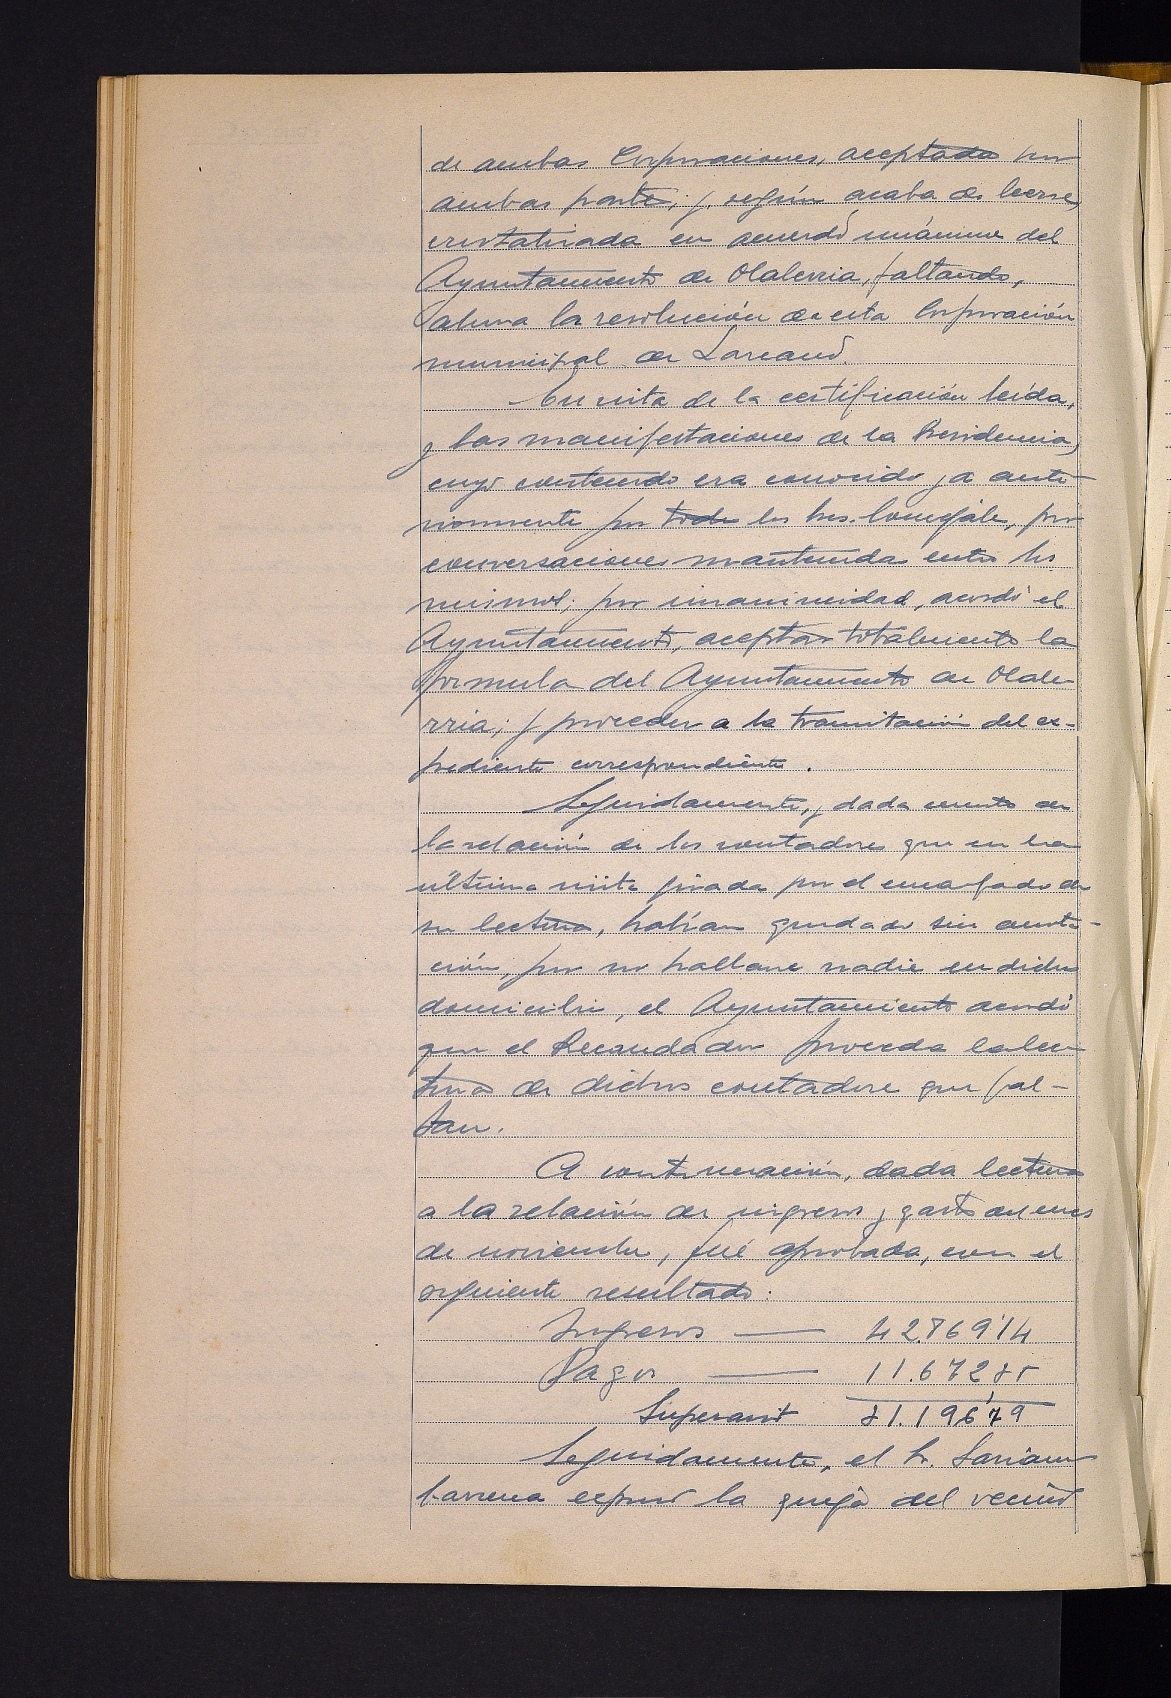 de ambas Corporaciones, aceptada por
ambas partes, y, según acaba de leerse,
cristalizada en acuerdo unánime del
Ayuntamiento de Olaberria, faltando,
ahora la resolución de esta Corporación
municipal de Lazcano.
En vista de la certificación leída,
y las manifestaciones de la Presidencia,
cuyo contenido era conocido ya ante-
riormente por todos los Sres. Concejales, por
conversaciones mantenidas entre los
mismos; por unanimidad, acordó el
Ayuntamiento, aceptar totalmente la
fórmula del Ayuntamiento de Olabe-
rria; y proceder a la tramitación del ex-
pediente correspondiente.
Seguidamente, y dada cuenta de
la relación de los contadores que en la
última visita girada por el encargado de
su lectura, habían quedado sin anota-
ción, por no hallarse nadie en dicho
domicilio, el Ayuntamiento acordó
que el Recaudador proceda a la lec-
tura de dichos contadores que fal-
tan.
A continuación, dada lectura
a la relación de ingresos y gastos del mes
de noviembre, fué aprobada, con el
siguiente resultado:
Ingresos — 42.869'14
Pagos — 11.672'35
Superavit 31.196'79
Seguidamente, el Sr.
barrena expuso la queja del vecino